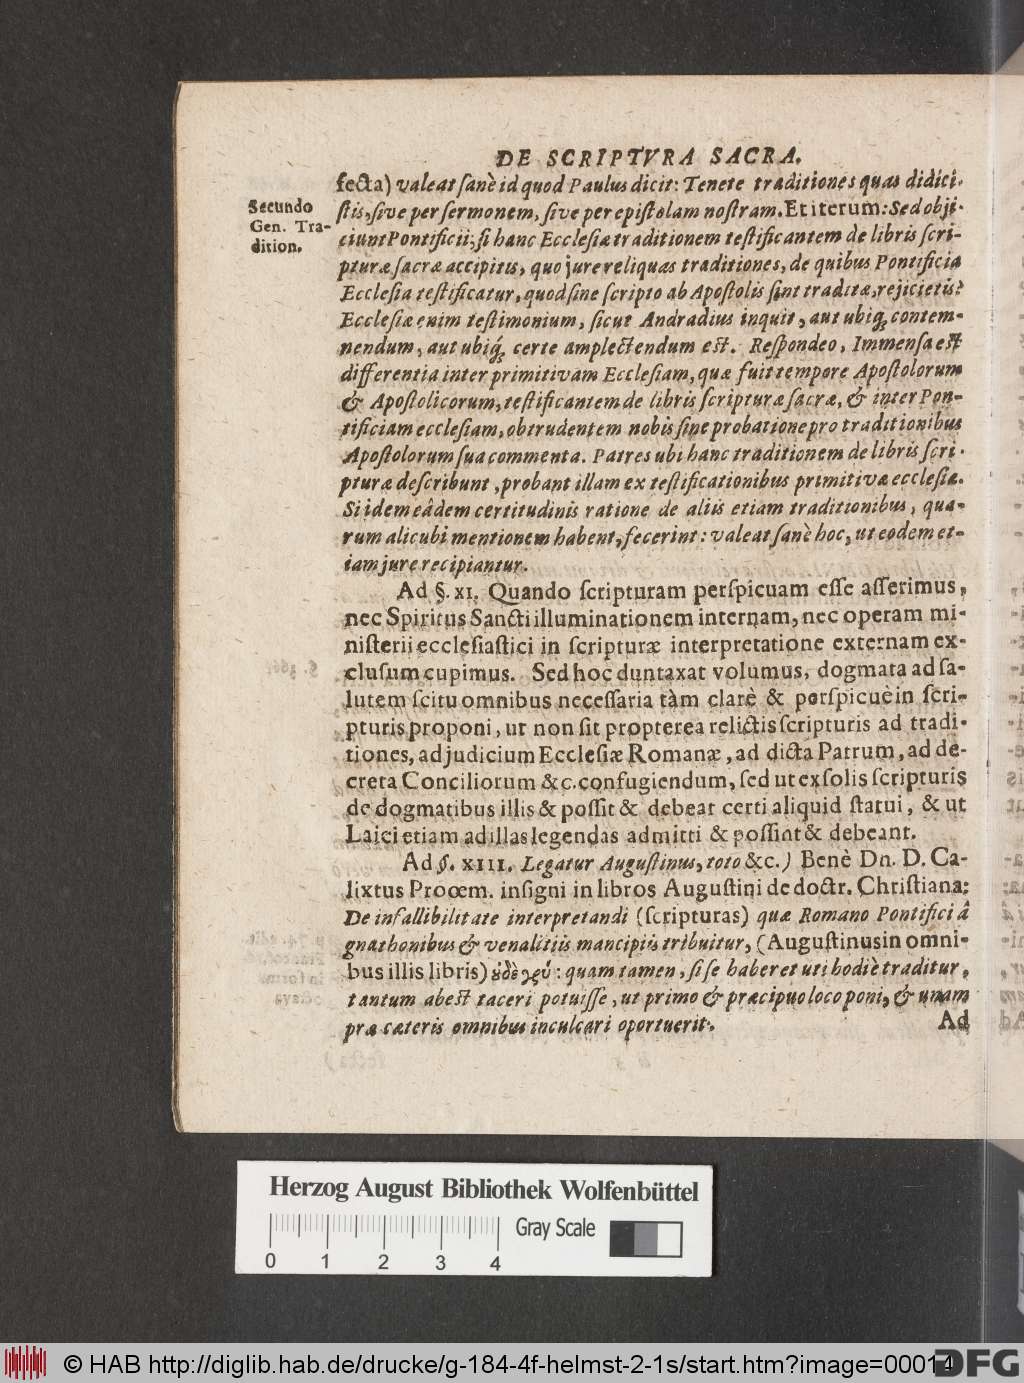 DE SCRIPTVRA SACRA.
fecta) valeat ſanè id quod Paulus dicit: Tenete traditiones quas didici-
Secundo
Gen. Tra-
dition.
ſtis, ſive per ſermonem, ſive per epiſtolam noſtram. Et iterum: Sed obji-
ciunt Pontificii; ſi hanc Eccleſiæ traditionem teſtificantem de libris ſcri-
pturæ ſacræ accipitis, quo jure reliquas traditiones, de quibus Pontificia
Eccleſia teſtificatur, quod ſine ſcripto ab Apoſtolis ſint traditæ, rejicietis?
Eccleſiæ enim teſtimonium, ſicut Andradius inquit, aut ubiq́; contem-
nendum, aut ubiq́; certe amplectendum eſt. Reſpondeo, Immenſa eſt
differentia inter primitivam Eccleſiam, quæ fuit tempore Apoſtolorum
& Apoſtolicorum, teſtificantem de libris ſcripturæ ſacræ, & inter Pon-
tificiam eccleſiam, obtrudentem nobis ſine probatione pro traditionibus
Apoſtolorum ſua commenta. Patres ubi hanc traditionem de libris ſcri-
pturæ deſcribunt, probant illam ex teſtificationibus primitivæ eccleſiæ.
Si idem eâdem certitudinis ratione de aliis etiam traditionibus, qua-
rum alicubi mentionem habent, fecerint: valeat ſanè hoc, ut eodem et-
iam jure recipiantur.
Ad §. XI. Quando ſcripturam perſpicuam eſſe aſſerimus,
nec Spiritus Sancti illuminationem internam, nec operam mi-
niſterii eccleſiaſtici in ſcripturæ interpretatione externam ex-
cluſum cupimus. Sed hoc duntaxat volumus, dogmata ad ſa-
lutem ſcitu omnibus neceſſaria tàm clarè & perſpicuè in ſcri-
pturis proponi, ut non ſit propterea relictis ſcripturis ad tradi-
tiones, ad judicium Eccleſiæ Romanæ, ad dicta Patrum, ad de-
creta Conciliorum &c. confugiendum, ſed ut ex ſolis ſcripturis
de dogmatibus illis & poſſit & debeat certi aliquid ſtatui, & ut
Laici etiam ad illas legendas admitti & poſſint & debeant.
Ad §. XIII. Legatur Auguſtinus, toto &c.) Benè Dn. D. Ca-
lixtus Prooem. inſigni in libros Auguſtini de doctr. Chriſtiana:
De infallibilitate interpretandi (ſcripturas) quæ Romano Pontifici â
gnathonibus & venalitiis mancipiis tribuitur, (Auguſtinus in omni-
bus illis libris) ουδὲ γρύ: quam tamen, ſi ſe haberet uti hodiè traditur,
tantum abeſt taceri potuiſſe, ut primo & præcipuo loco poni, & unam
præ cæteris omnibus inculcari oportuerit.
Ad
Herzog August Bibliothek Wolfenbüttel
Gray Scale
0 1 2 3 4
© HAB http://diglib.hab.de/drucke/g-184-4f-helmst-2-1s/start.htm?image=00014
DFG